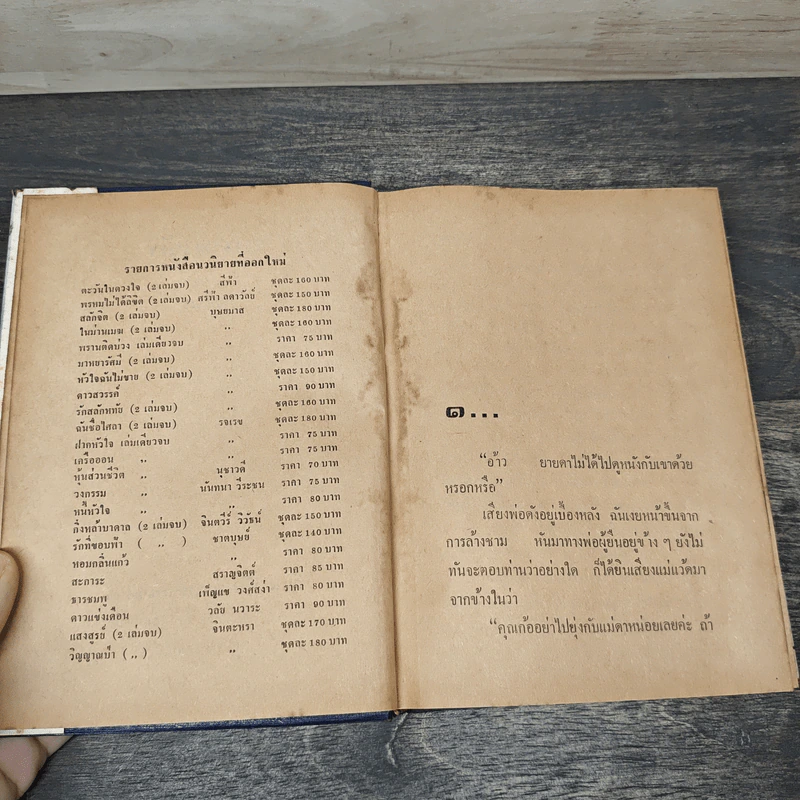 รายการหนังสือนวนิยายที่ออกใหม่
ตะวันในดวงใจ (2 เล่มจบ) สีฟ้า ชุดละ 160 บาท
พรหมไม่ได้ลิขิต (2 เล่มจบ) ศรีฟ้า ลดาวัลย์ ชุดละ 150 บาท
สลักจิต (2 เล่มจบ) บุษยมาส ชุดละ 180 บาท
ในม่านเมฆ (2 เล่มจบ) ,, ชุดละ 160 บาท
พรานติดบ่วง เล่มเดียวจบ ,, ราคา 75 บาท
มาหยารัศมี (2 เล่มจบ) ,, ชุดละ 160 บาท
หัวใจฉันไม่ขาย (2 เล่มจบ) ,, ชุดละ 150 บาท
ดาวสวรรค์ ,, ราคา 90 บาท
รักสลักหทัย (2 เล่มจบ) ,, ชุดละ 160 บาท
ฉันชื่อไศลา (2 เล่มจบ) รจเรข ชุดละ 180 บาท
ฝากหัวใจ เล่มเดียวจบ ,, ราคา 75 บาท
เครือออน ,, ,, ราคา 75 บาท
หุ้นส่วนชีวิต ,, นุชาวดี ราคา 70 บาท
วงกรรม ,, นันทนา วีระชน ราคา 75 บาท
หนี้หัวใจ ,, ,, ราคา 80 บาท
กิ่งหล้าบาดาล (2 เล่มจบ) จินตวีร์ วิวัธน์ ชุดละ 150 บาท
รักที่ขอบฟ้า ( ,, ) ชาตบุษย์ ชุดละ 140 บาท
หอมกลิ่นแก้ว ,, ราคา 80 บาท
สะการะ สราญจิตต์ ราคา 85 บาท
ธารชมพู เพ็ญแข วงศ์สง่า ราคา 80 บาท
ดาวแข่งเดือน วลัย นวาระ ราคา 90 บาท
แสงสูรย์ (2 เล่มจบ) จินตะหรา ชุดละ 170 บาท
วิญญาณป่า ( ,, ) ,, ชุดละ 180 บาท
๑...
“อ้าว ยายดาไม่ได้ไปดูหนังกับเขาด้วย
หรอกหรือ”
เสียงพ่อดังอยู่เบื้องหลัง ฉันเงยหน้าขึ้นจาก
การล้างชาม หันมาทางพ่อผู้ยืนอยู่ข้าง ๆ ยังไม่
ทันจะตอบท่านว่าอย่างใด ก็ได้ยินเสียงแม่แว้ดมา
จากข้างในว่า
“คุณเก้ออย่าไปยุ่งกับแม่ดาหน่อยเลยค่ะ ถ้า